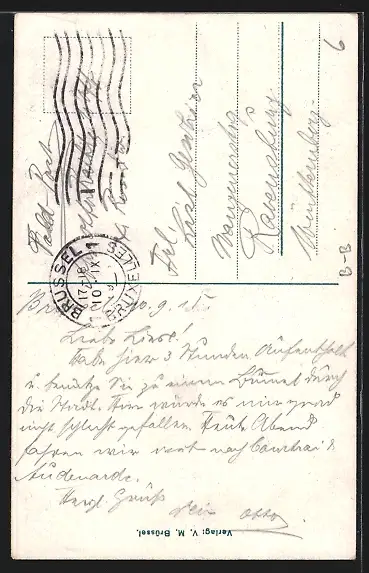 Feld-Post
Frl.
Wangenerstr.
Ravensburg.
Württemberg.
6
B-B
BRÜSSEL 1
BRUXELLES
10 IX
Br 10.9.15.
Liebe Liesel!
Habe hier 3 Stunden Aufenthalt
u. benütze sie zu einem Bummel durch
die Stadt. Hier würde es mir grad
nicht schlecht gefallen. Heute Abend
fahren wir weit nach Courtrai &
Audenarde.
Herzl. Gruß
Dein Otto
Verlag: V. M. Brüssel.